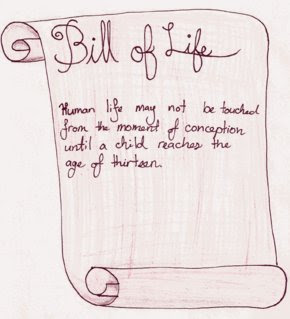 Bill of Life
Human life may not be touched
from the moment of conception
until a child reaches the
age of thirteen.